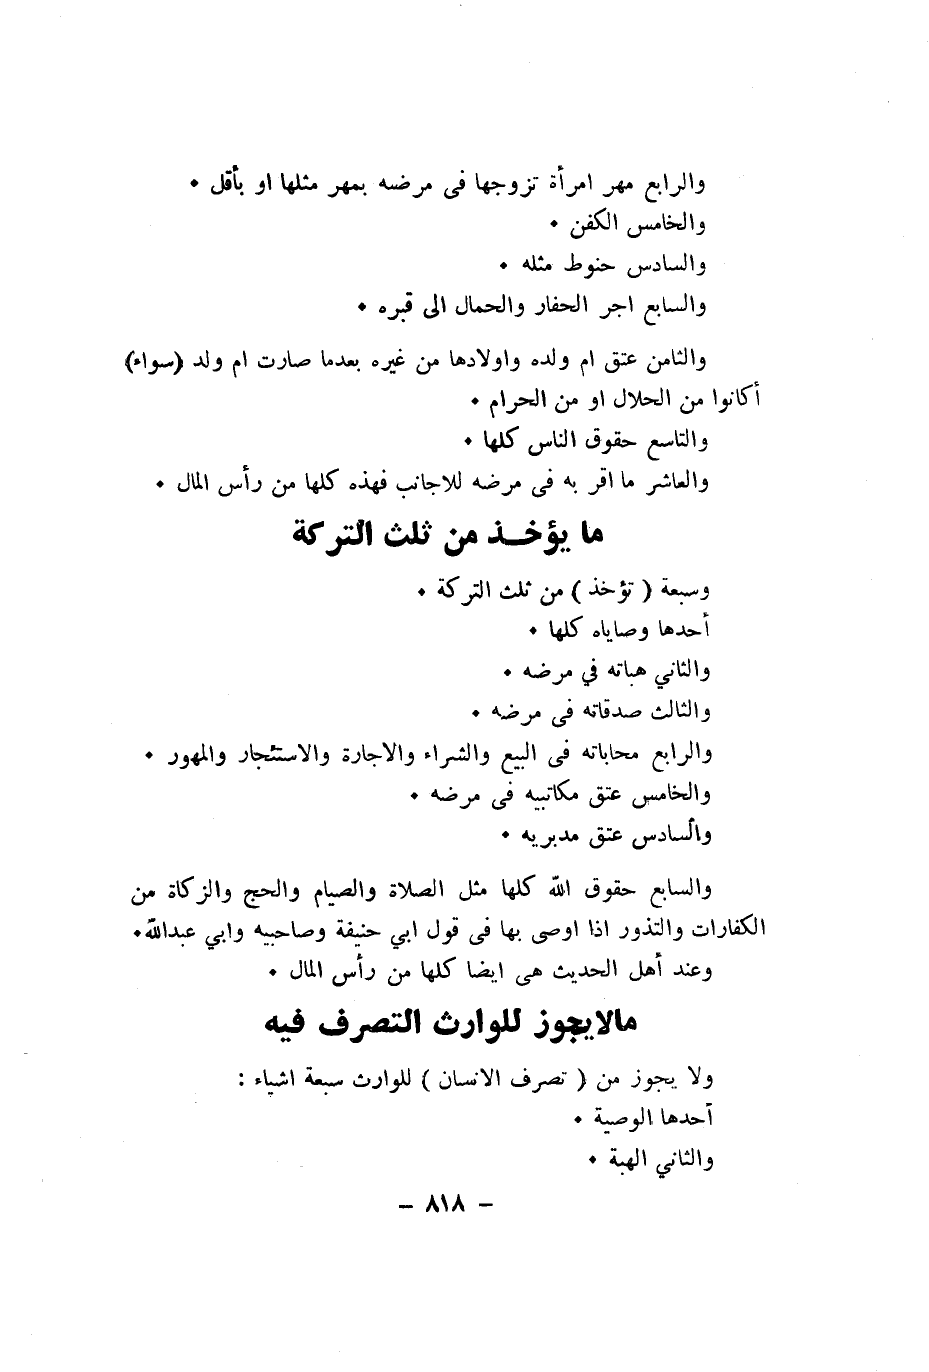 والرابع مهر امرأة تزوجها فى مرضه بمهر مثلها او بأقل ٠
والخامس الكفن ٠
والسادس حنوط مثله ٠
والسابع اجر الحفار والحمال الى قبره ٠
والثامن عتق ام ولده واولادها من غيره بعدما صارت ام ولد (سواء)
أكانوا من الحلال او من الحرام ٠
والتاسع حقوق الناس كلها ٠
والعاشر ما اقر به فى مرضه للاجانب فهذه كلها من رأس المال ٠
ما يؤخــذ من ثلث التركة
وسبعة ( تؤخذ ) من ثلث التركة ٠
أحدها وصاياه كلها ٠
والثاني هباته في مرضه ٠
والثالث صدقاته فى مرضه ٠
والرابع محاباته فى البيع والشراء والاجارة والاستئجار والمهور ٠
والخامس عتق مكاتبيه فى مرضه ٠
والسادس عتق مدبريه ٠
والسابع حقوق الله كلها مثل الصلاة والصيام والحج والزكاة من
الكفارات والتذور اذا اوصى بها فى قول ابي حنيفة وصاحبيه وابي عبدالله٠
وعند أهل الحديث هى ايضا كلها من رأس المال ٠
مالايجوز للوارث التصرف فيه
ولا يجوز من ( تصرف الانسان ) للوارث سبعة اشياء :
أحدها الوصية ٠
والثاني الهبة ٠
– ٨١٨ –